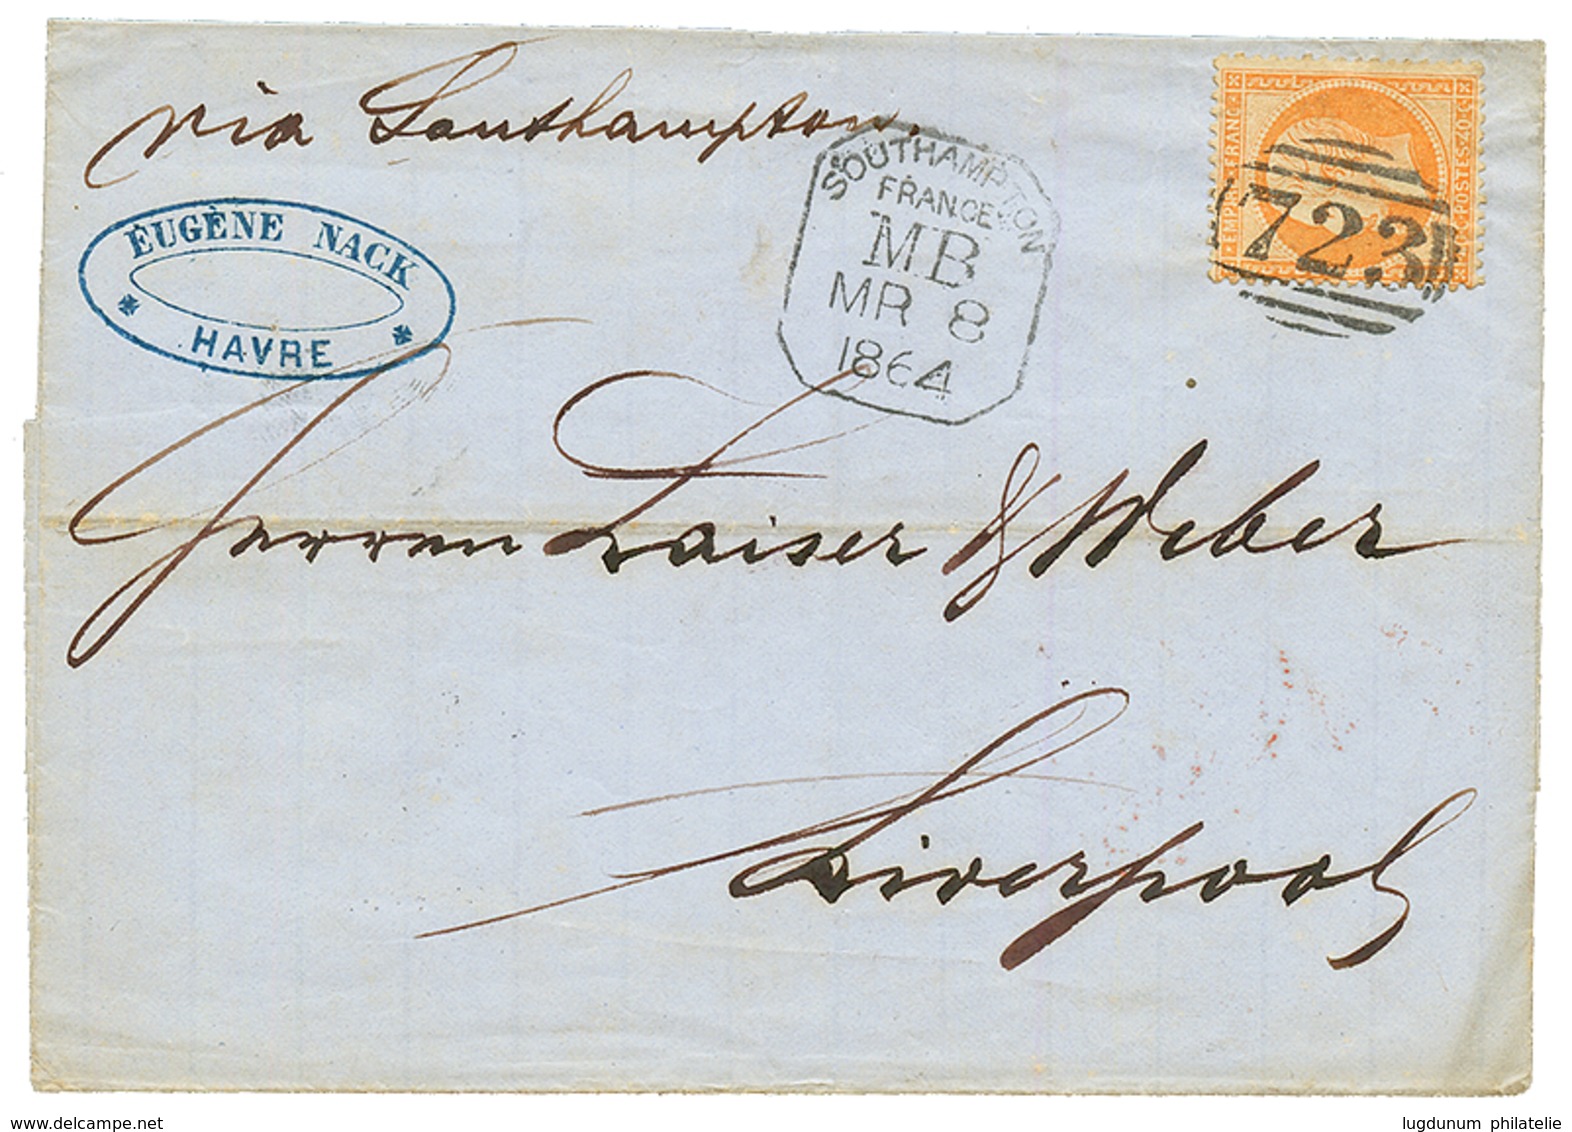 via Southampton.
EUGÈNE NACK
HAVRE
SOUTHAMPTON
FRANCE
MB
MR 8
1864
EMPIRE FRANC
POSTES 40 C
723
Herren Kaiser & Weber
Liverpool
www.delcampe.net
lugdunum philatelie